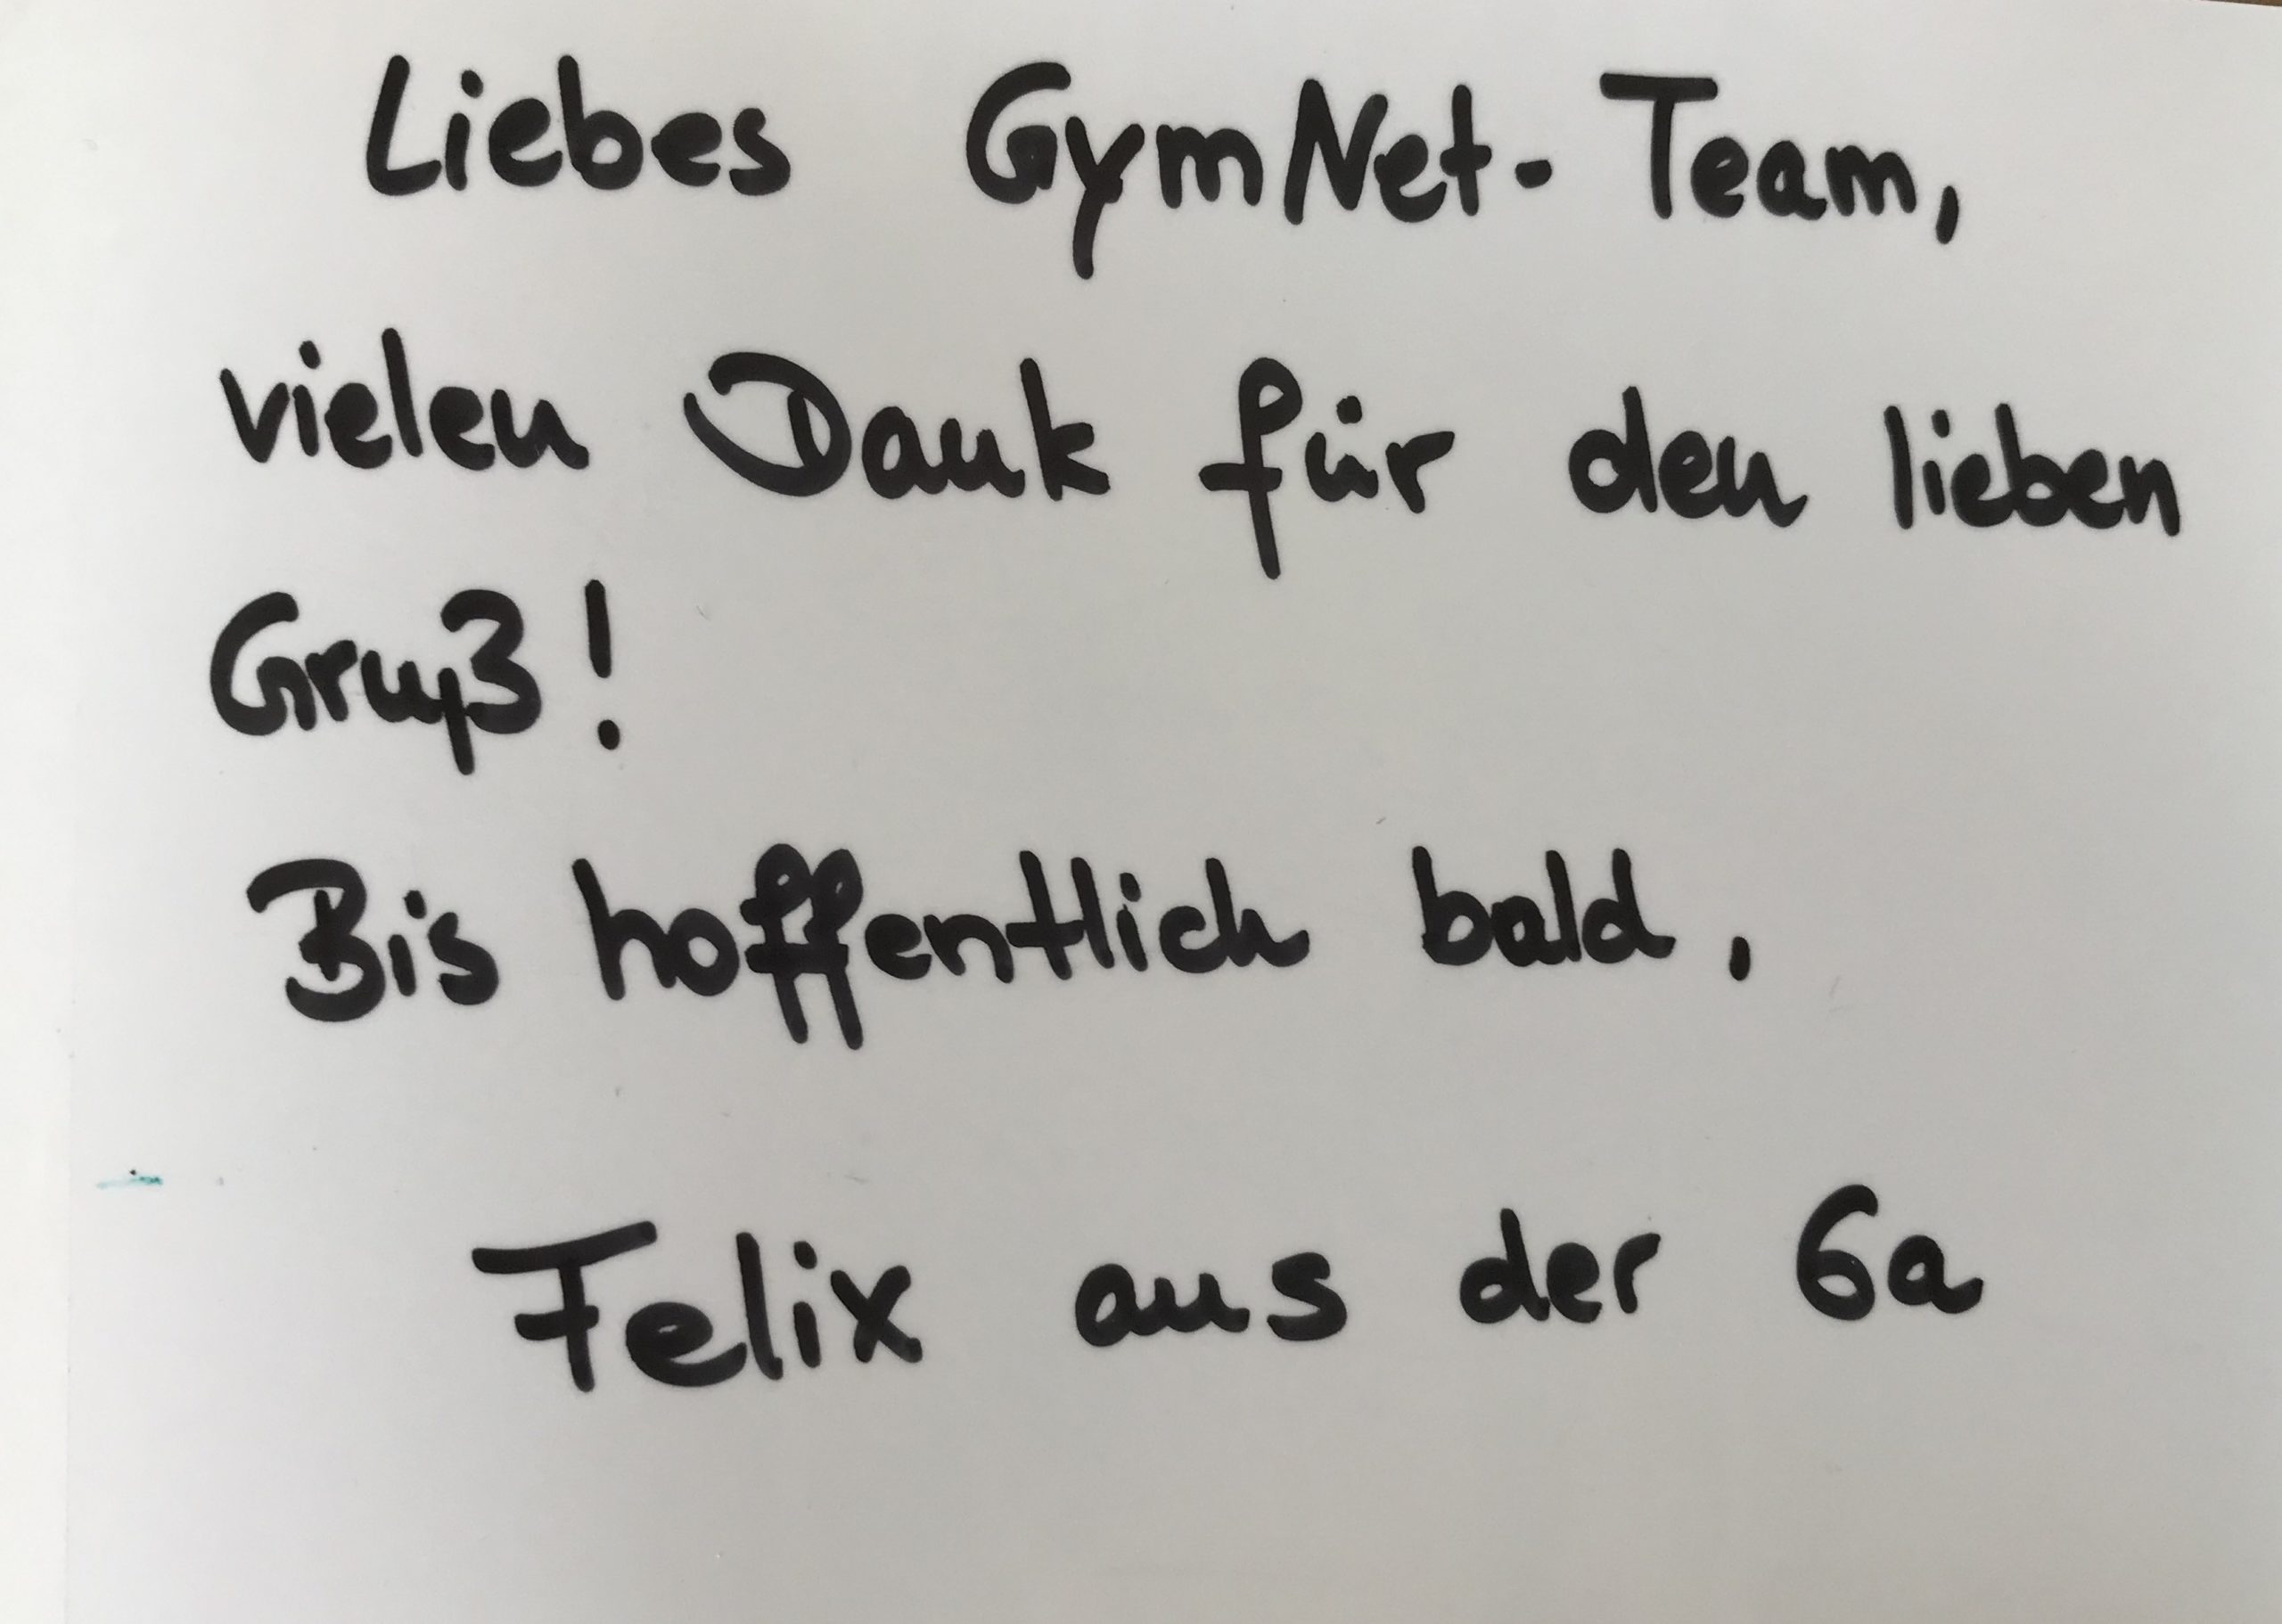 Liebes GymNet-Team,
vielen Dank für den lieben
Gruß!
Bis hoffentlich bald,
Felix aus der 6a